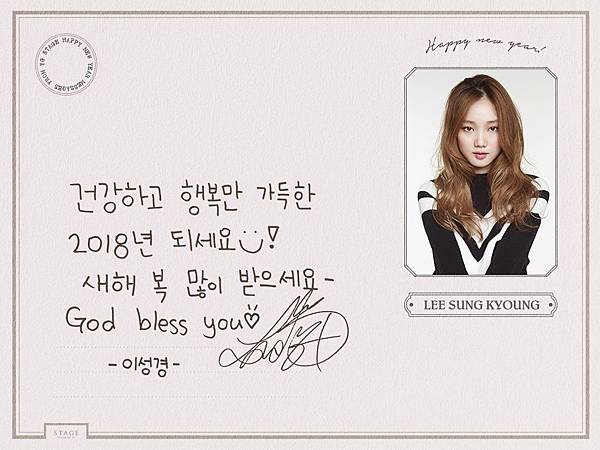 YG STAGE HAPPY NEW YEAR MESSAGES FROM
Happy new year!
건강하고 행복만 가득한
2018년 되세요!
새해 복 많이 받으세요-
God bless you
-이성경-
LEE SUNG KYOUNG
STAGE